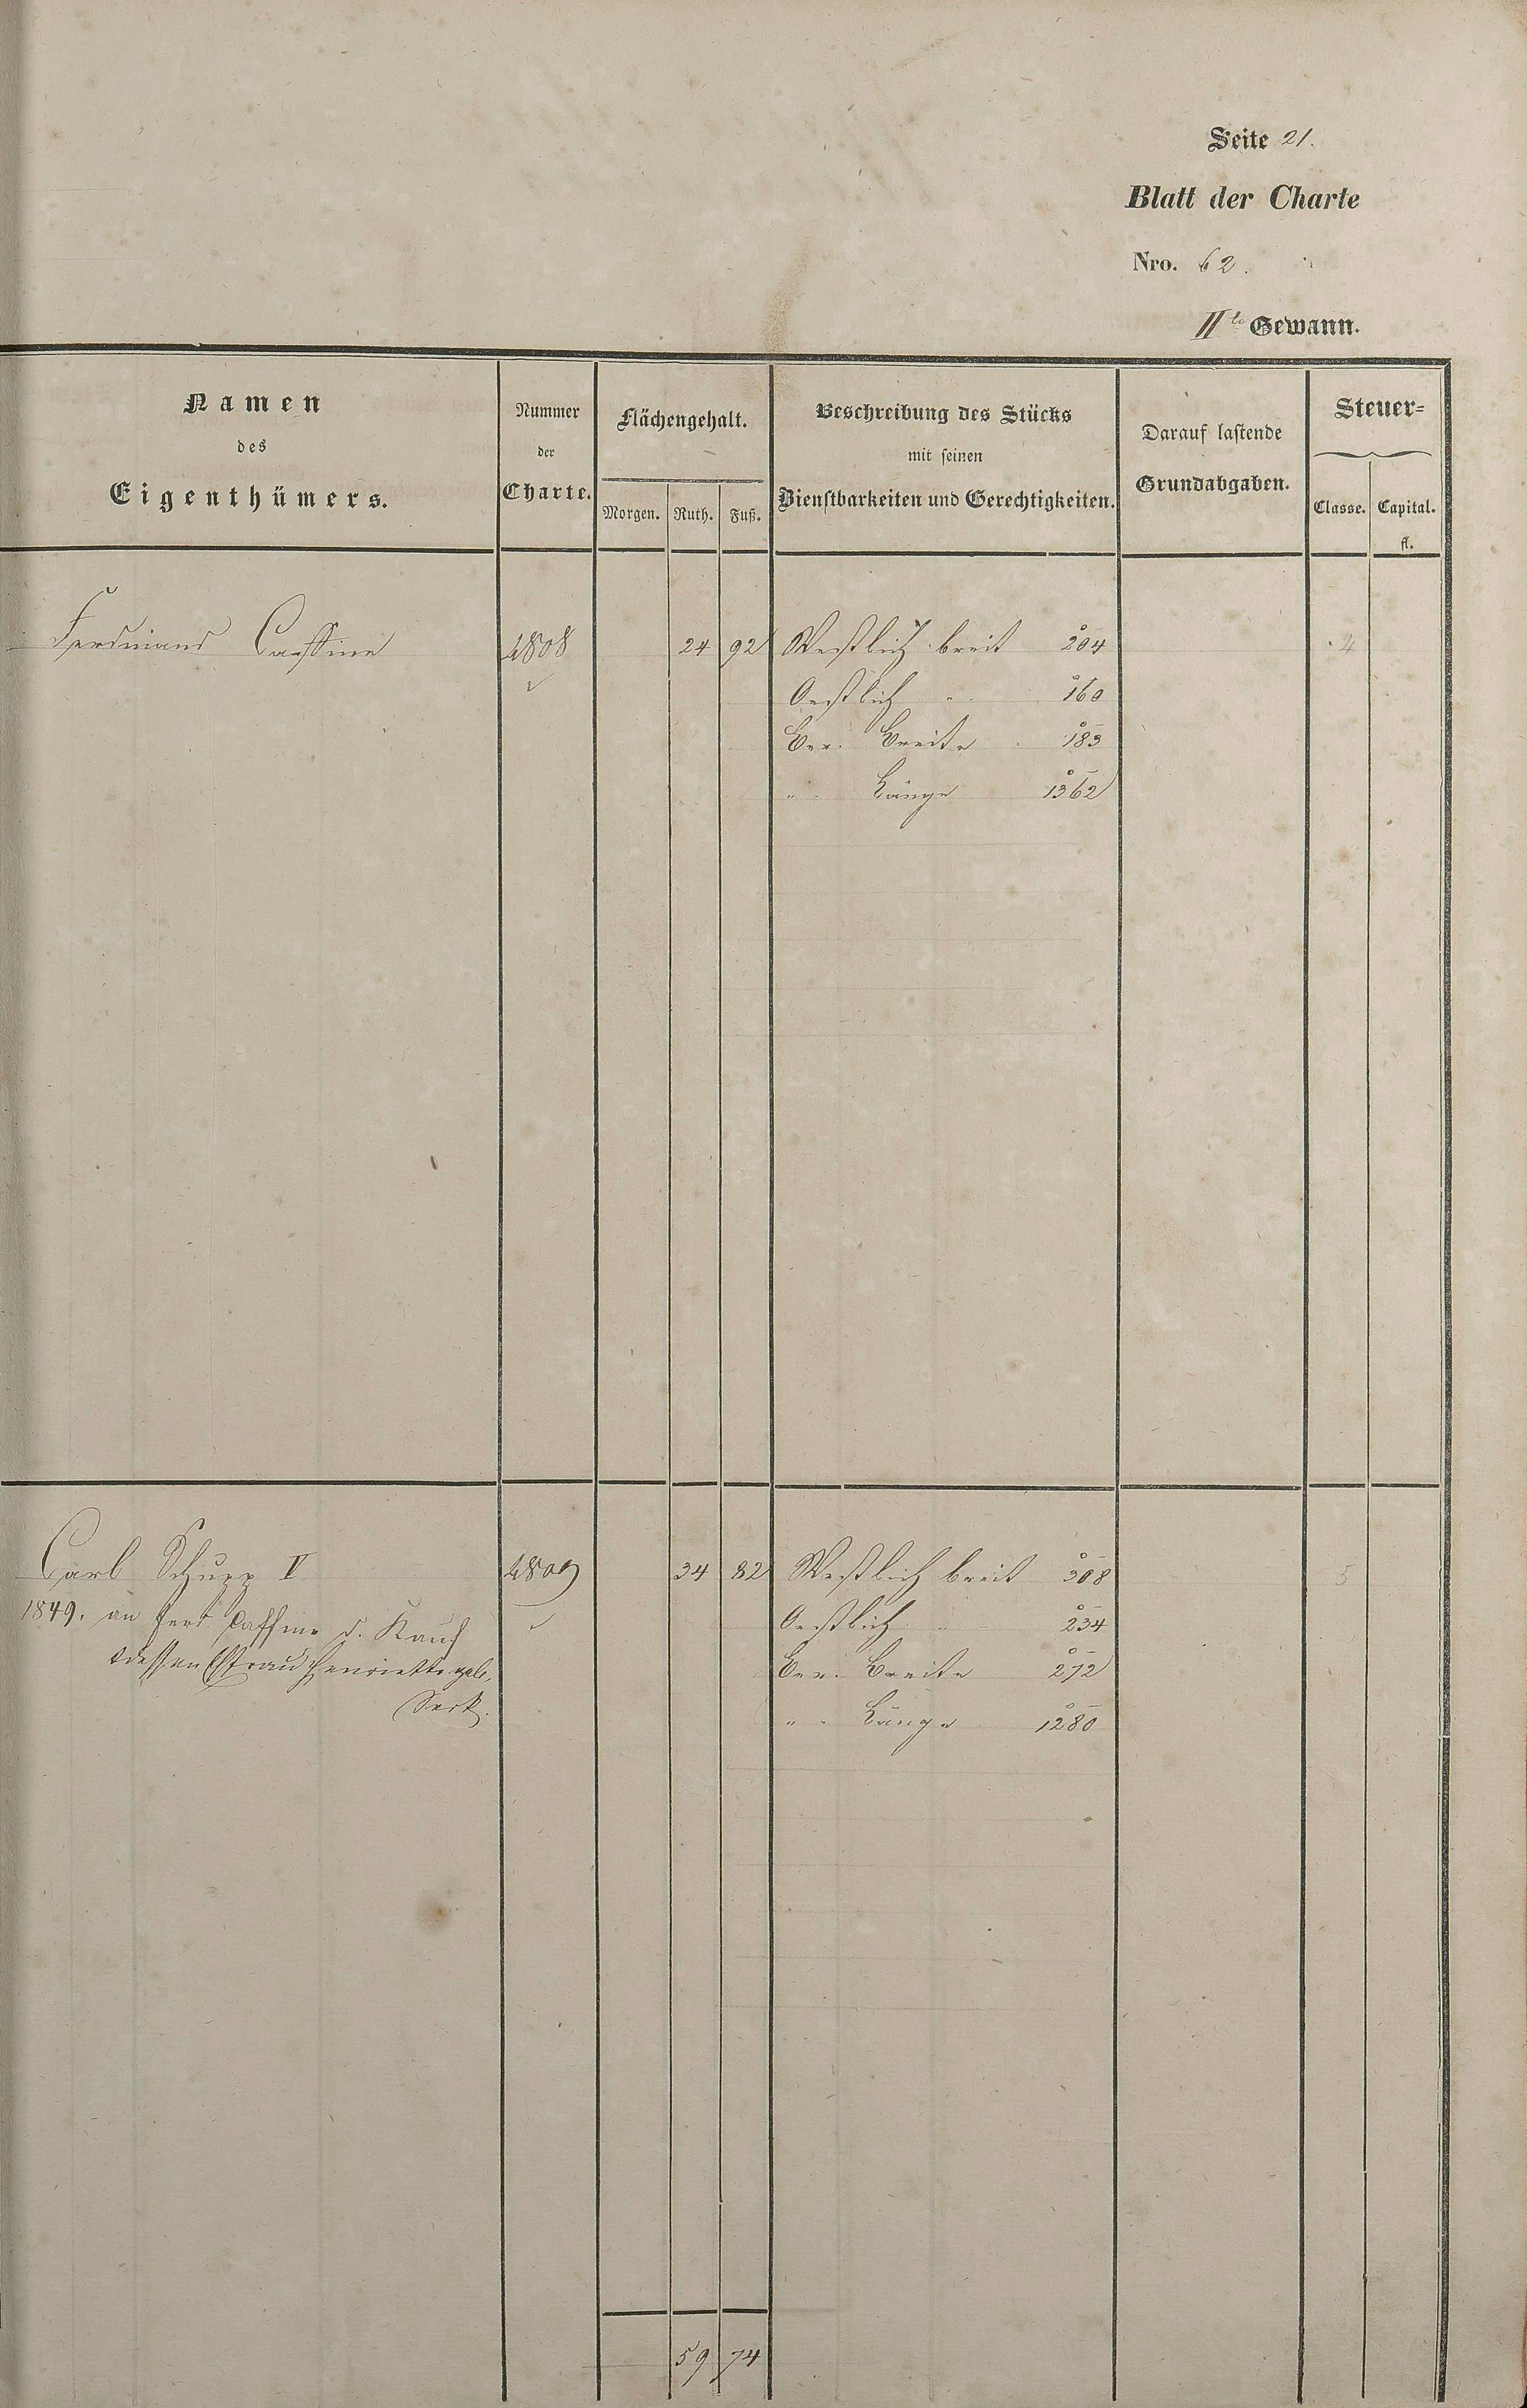 Seite 21.
Blatt der Charte
Nro. 62.
IIte Gewann.
Namen
des
Eigenthümers.
Nummer
der
Charte.
Flächengehalt.
Morgen. Ruth. Fuß.
Beschreibung des Stücks
mit seinen
Dienstbarkeiten und Gerechtigkeiten.
Darauf lastende
Grundabgaben.
Steuer-
Classe. Capital.
fl.
Ferdinand Caffine 4808 24 92 Westlich breit 204 4
Oestlich " 160
Ber. Breite 183
" Länge 1362
Carl Schupp II 4809 34 82 Westlich breit 308 5
1849. an Ferd. Caffine d. Kauf
Oestlich " 234
dessen Ehefrau Henriette geb.
Ber. Breite 272
" Länge 1280
59 74